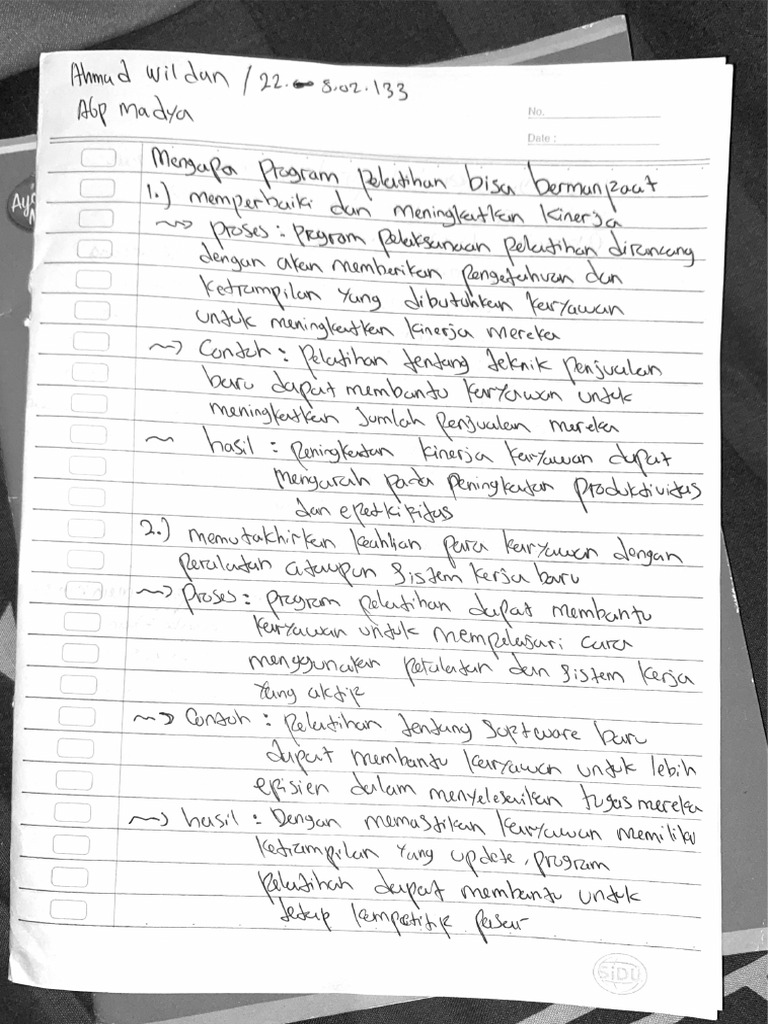 Ahmad Wildan / 22. 8.02.133
A6p Madya
No.
Date :
Mengapa program pelatihan bisa bermanpaat
1.) memperbaiki dan meningkatkan kinerja
~> proses : program pelaksanaan pelatihan dirancang
dengan akan memberikan pengetahuan dan
ketrampilan yang dibutuhkan karyawan
untuk meningkatkan kinerja mereka
~> Contoh : pelatihan tentang teknik penjualan
baru dapat membantu karyawan untuk
meningkatkan jumlah penjualan mereka
~ hasil : peningkatan kinerja karyawan dapat
mengarah pada peningkatan produktivitas
dan
2.) memutakhirkan keahlian para karyawan dengan
peralatan ataupun sistem kerja baru
~> proses : program pelatihan dapat membantu
karyawan untuk mempelajari cara
menggunakan peralatan dan sistem kerja
yang aktip
~> Contoh : pelatihan tentang Soptware baru
dapat membantu karyawan untuk lebih
episien dalam menyelesaikan tugas mereka
~> hasil : Dengan memastikan karyawan memiliki
ketrampilan yang update, program
pelatihan dapat membantu untuk
tetap kompetitip pasar
SiDU